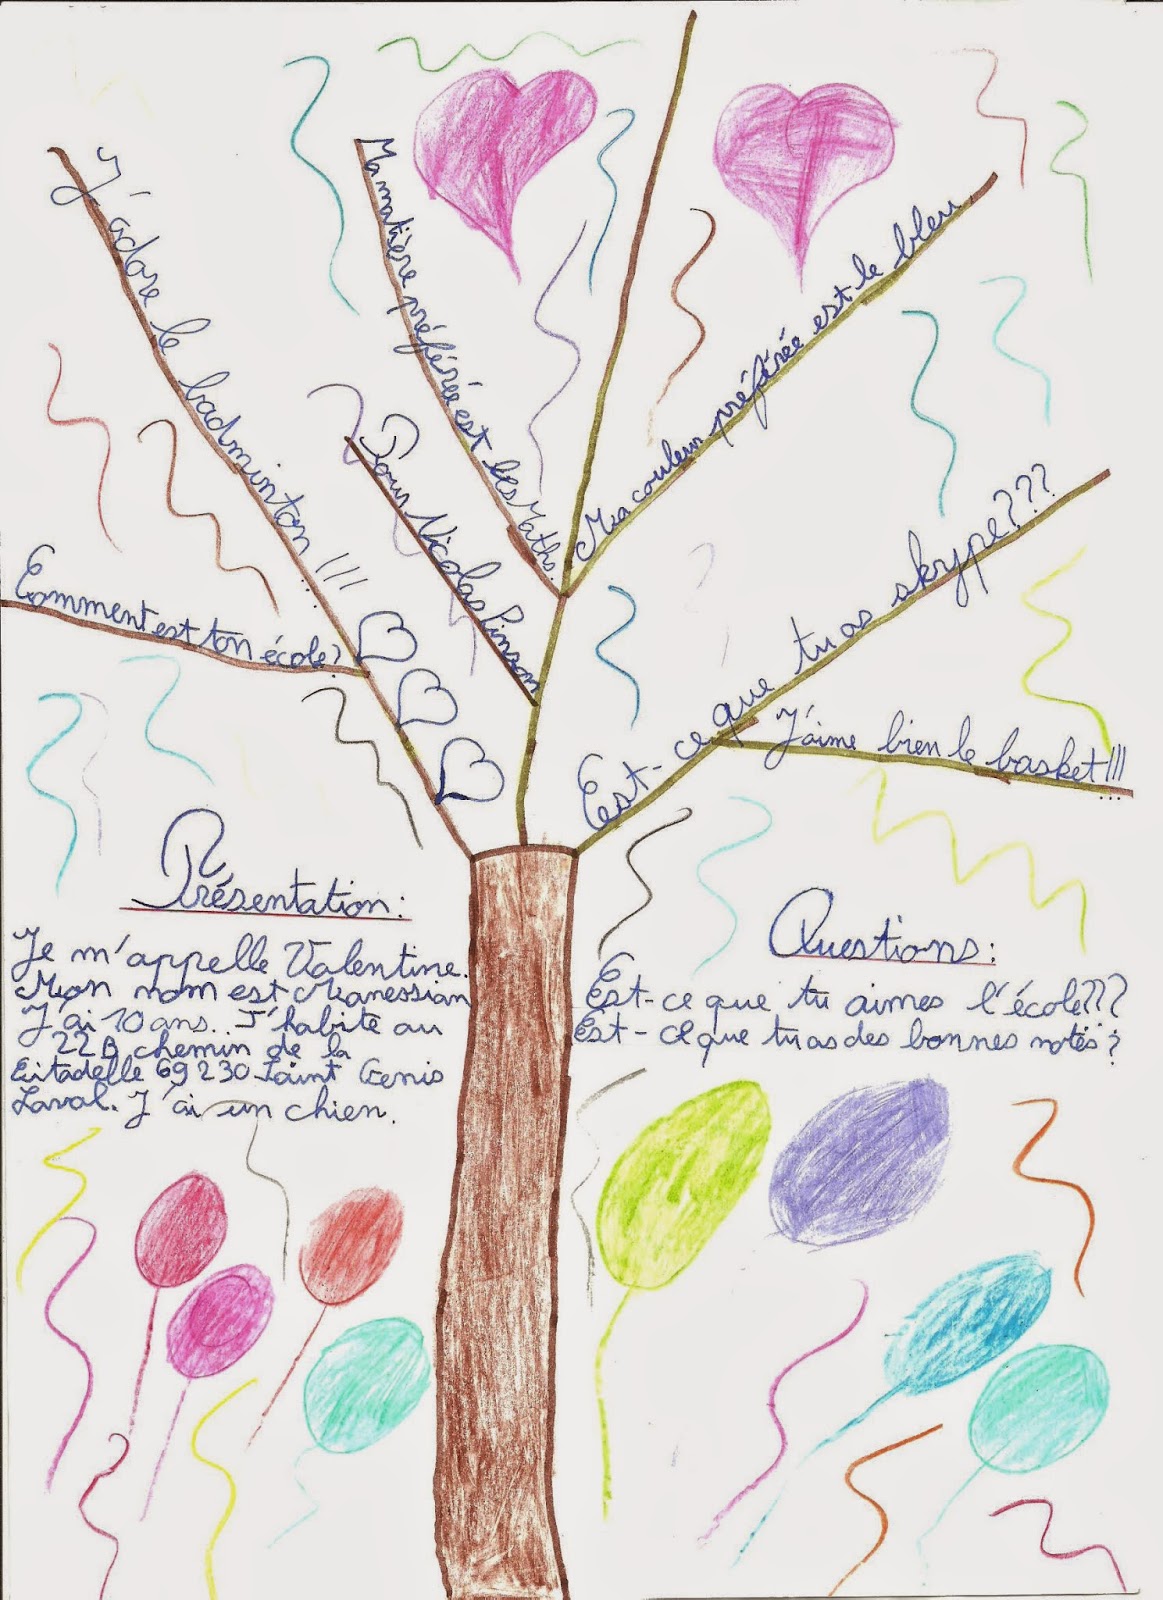 J'adore le badminton !!!
Ma matière préférée est les Maths.
Ma couleur préférée est le bleu
Pour Nicolas Pinson
Est-ce que tu as skype???
Comment est ton école?
J'aime bien le basket!!!
Présentation:
Je m'appelle Valentine.
Mon nom est Manessian
J'ai 10 ans. J'habite au
22B chemin de la
Citadelle 69230 Saint Genis
Laval. J'ai un chien.
Questions:
Est-ce que tu aimes l'école???
Est-ce que tu as des bonnes notes?